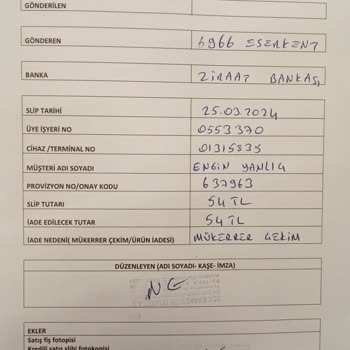 GÖNDERİLEN
GÖNDEREN 6966 ESERKENT
BANKA ZİRAAT BANKASI
SLİP TARİHİ 25.03.2024
ÜYE İŞYERİ NO 0553370
CİHAZ /TERMİNAL NO 01315835
MÜŞTERİ ADI SOYADI ENGİN YANLIG
PROVİZYON NO/ONAY KODU 637963
SLİP TUTARI 54 TL
İADE EDİLECEK TUTAR 54 TL
İADE NEDENİ( MÜKERRER ÇEKİM/ÜRÜN İADESİ) MÜKERRER ÇEKİM
DÜZENLEYEN (ADI SOYADI- KAŞE- İMZA)
EKLER
Satış fiş fotopisi
Kredili satış slibi fotokopisi